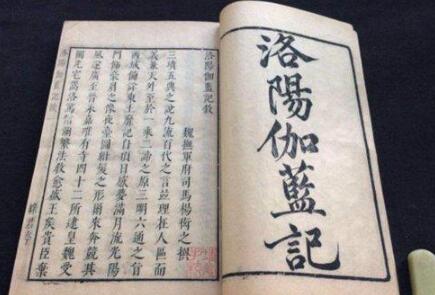 洛陽伽藍記
洛陽伽藍記敘
魏撫軍府司馬楊衒之撰
三墳五典之說九流百代之言並理在人區而
義兼天外至於一乘二諦之原三明六通之旨
西域備詳東土靡記自項日感夢滿月流光陽
門飾豪眉之像夜臺圖紺髮之形爾來奔競其
風遂廣至晉永嘉唯有寺四十二所逮皇魏受
圖光宅嵩洛篤信彌繁法教愈盛王侯貴臣棄
洛陽伽藍記敘
綠君亭